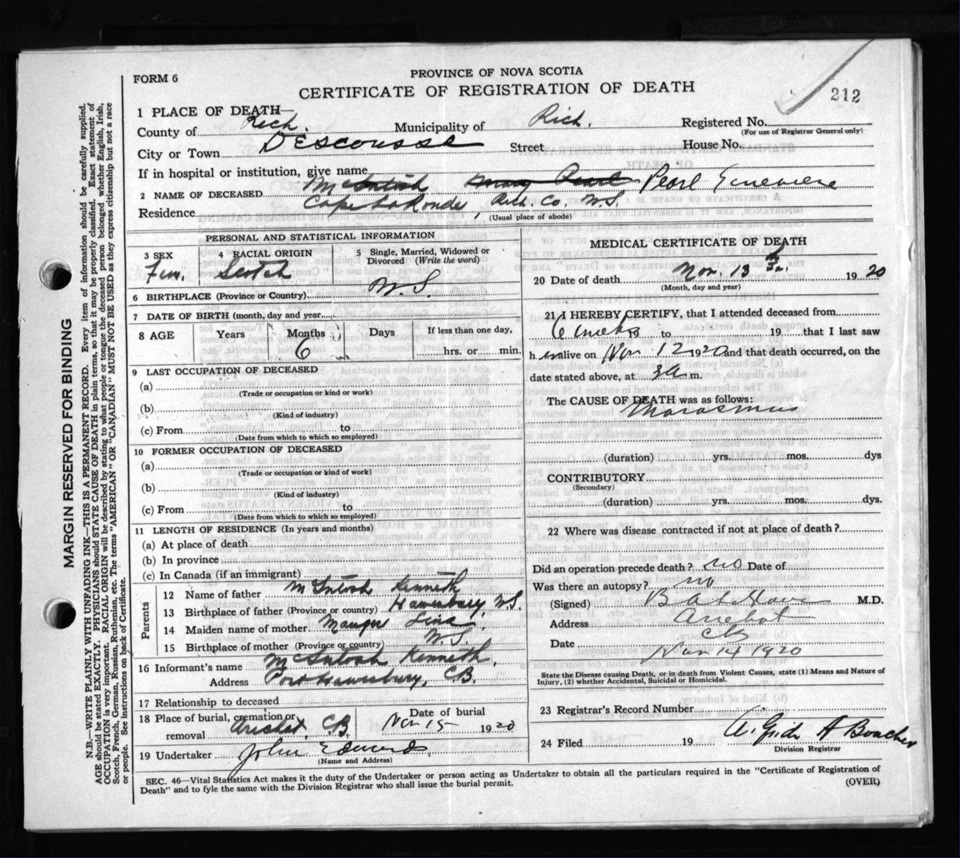 212
FORM 6
PROVINCE OF NOVA SCOTIA
CERTIFICATE OF REGISTRATION OF DEATH
1 PLACE OF DEATH—
County of Rich. Municipality of Rich. Registered No.
(For use of Registrar General only)
City or Town Descousse Street House No.
If in hospital or institution, give name
2 NAME OF DECEASED McIntosh Mary Pearl Pearl Genevieve
Residence Cape La Ronde, Rich. Co. N.S.
(Usual place of abode)
PERSONAL AND STATISTICAL INFORMATION
3 SEX Fem. 4 RACIAL ORIGIN Scotch 5 Single, Married, Widowed or Divorced (Write the word)
6 BIRTHPLACE (Province or Country) N.S.
7 DATE OF BIRTH (month, day and year)
8 AGE Years Months 6 Days If less than one day,
hrs. or min.
9 LAST OCCUPATION OF DECEASED
(a)
(Trade or occupation or kind or work)
(b)
(Kind of industry)
(c) From to
(Date from which to which so employed)
10 FORMER OCCUPATION OF DECEASED
(a)
(Trade or occupation or kind of work)
(b)
(Kind of industry)
(c) From to
(Date from which to which so employed)
11 LENGTH OF RESIDENCE (In years and months)
(a) At place of death
(b) In province
(c) In Canada (if an immigrant)
Parents
12 Name of father McIntosh Kenneth
13 Birthplace of father (Province or country) Hawksbury N.S.
14 Maiden name of mother Mauger
15 Birthplace of mother (Province or country) N.S.
16 Informant's name McIntosh Kenneth
Address Port Hawksbury, C.B.
17 Relationship to deceased
18 Place of burial, cremation or removal Arichat, C.B. Date of burial Nov 15 1920
19 Undertaker John Edward
(Name and Address)
MEDICAL CERTIFICATE OF DEATH
20 Date of death Nov. 13th 1920
(Month, day and year)
21 I HEREBY CERTIFY, that I attended deceased from
6 weeks 19 to 19 that I last saw
h er alive on Nov 12 1920 and that death occurred, on the
date stated above, at 3 a m.
The CAUSE OF DEATH was as follows:
Marasmus
(duration) yrs. mos. dys
CONTRIBUTORY
(Secondary)
(duration) yrs. mos. dys.
22 Where was disease contracted if not at place of death?
Did an operation precede death? no Date of
Was there an autopsy? no
(Signed) M.D.
Address Arichat
CB
Date Nov 14 1920
State the Disease causing Death, or in death from Violent Causes, state (1) Means and Nature of Injury, (2) whether Accidental, Suicidal or Homicidal.
23 Registrar's Record Number
24 Filed 19
Division Registrar
SEC. 46—Vital Statistics Act makes it the duty of the Undertaker or person acting as Undertaker to obtain all the particulars required in the "Certificate of Registration of
Death" and to fyle the same with the Division Registrar who shall issue the burial permit. (OVER)
MARGIN RESERVED FOR BINDING
N.B.—WRITE PLAINLY WITH UNFADING INK—THIS IS A PERMANENT RECORD. Every item of information should be carefully supplied.
AGE should be stated EXACTLY. PHYSICIANS should STATE CAUSE OF DEATH in plain terms, so that it may be properly classified. Exact statement of
OCCUPATION is very important. RACIAL ORIGIN will be described by stating to what people or tongue the deceased person belonged whether English, Irish,
Scotch, French, German, Russian, Ruthenian, etc. The terms "AMERICAN" or "CANADIAN" MUST NOT BE USED as they express citizenship but not a race
or people. See instructions on back of Certificate.